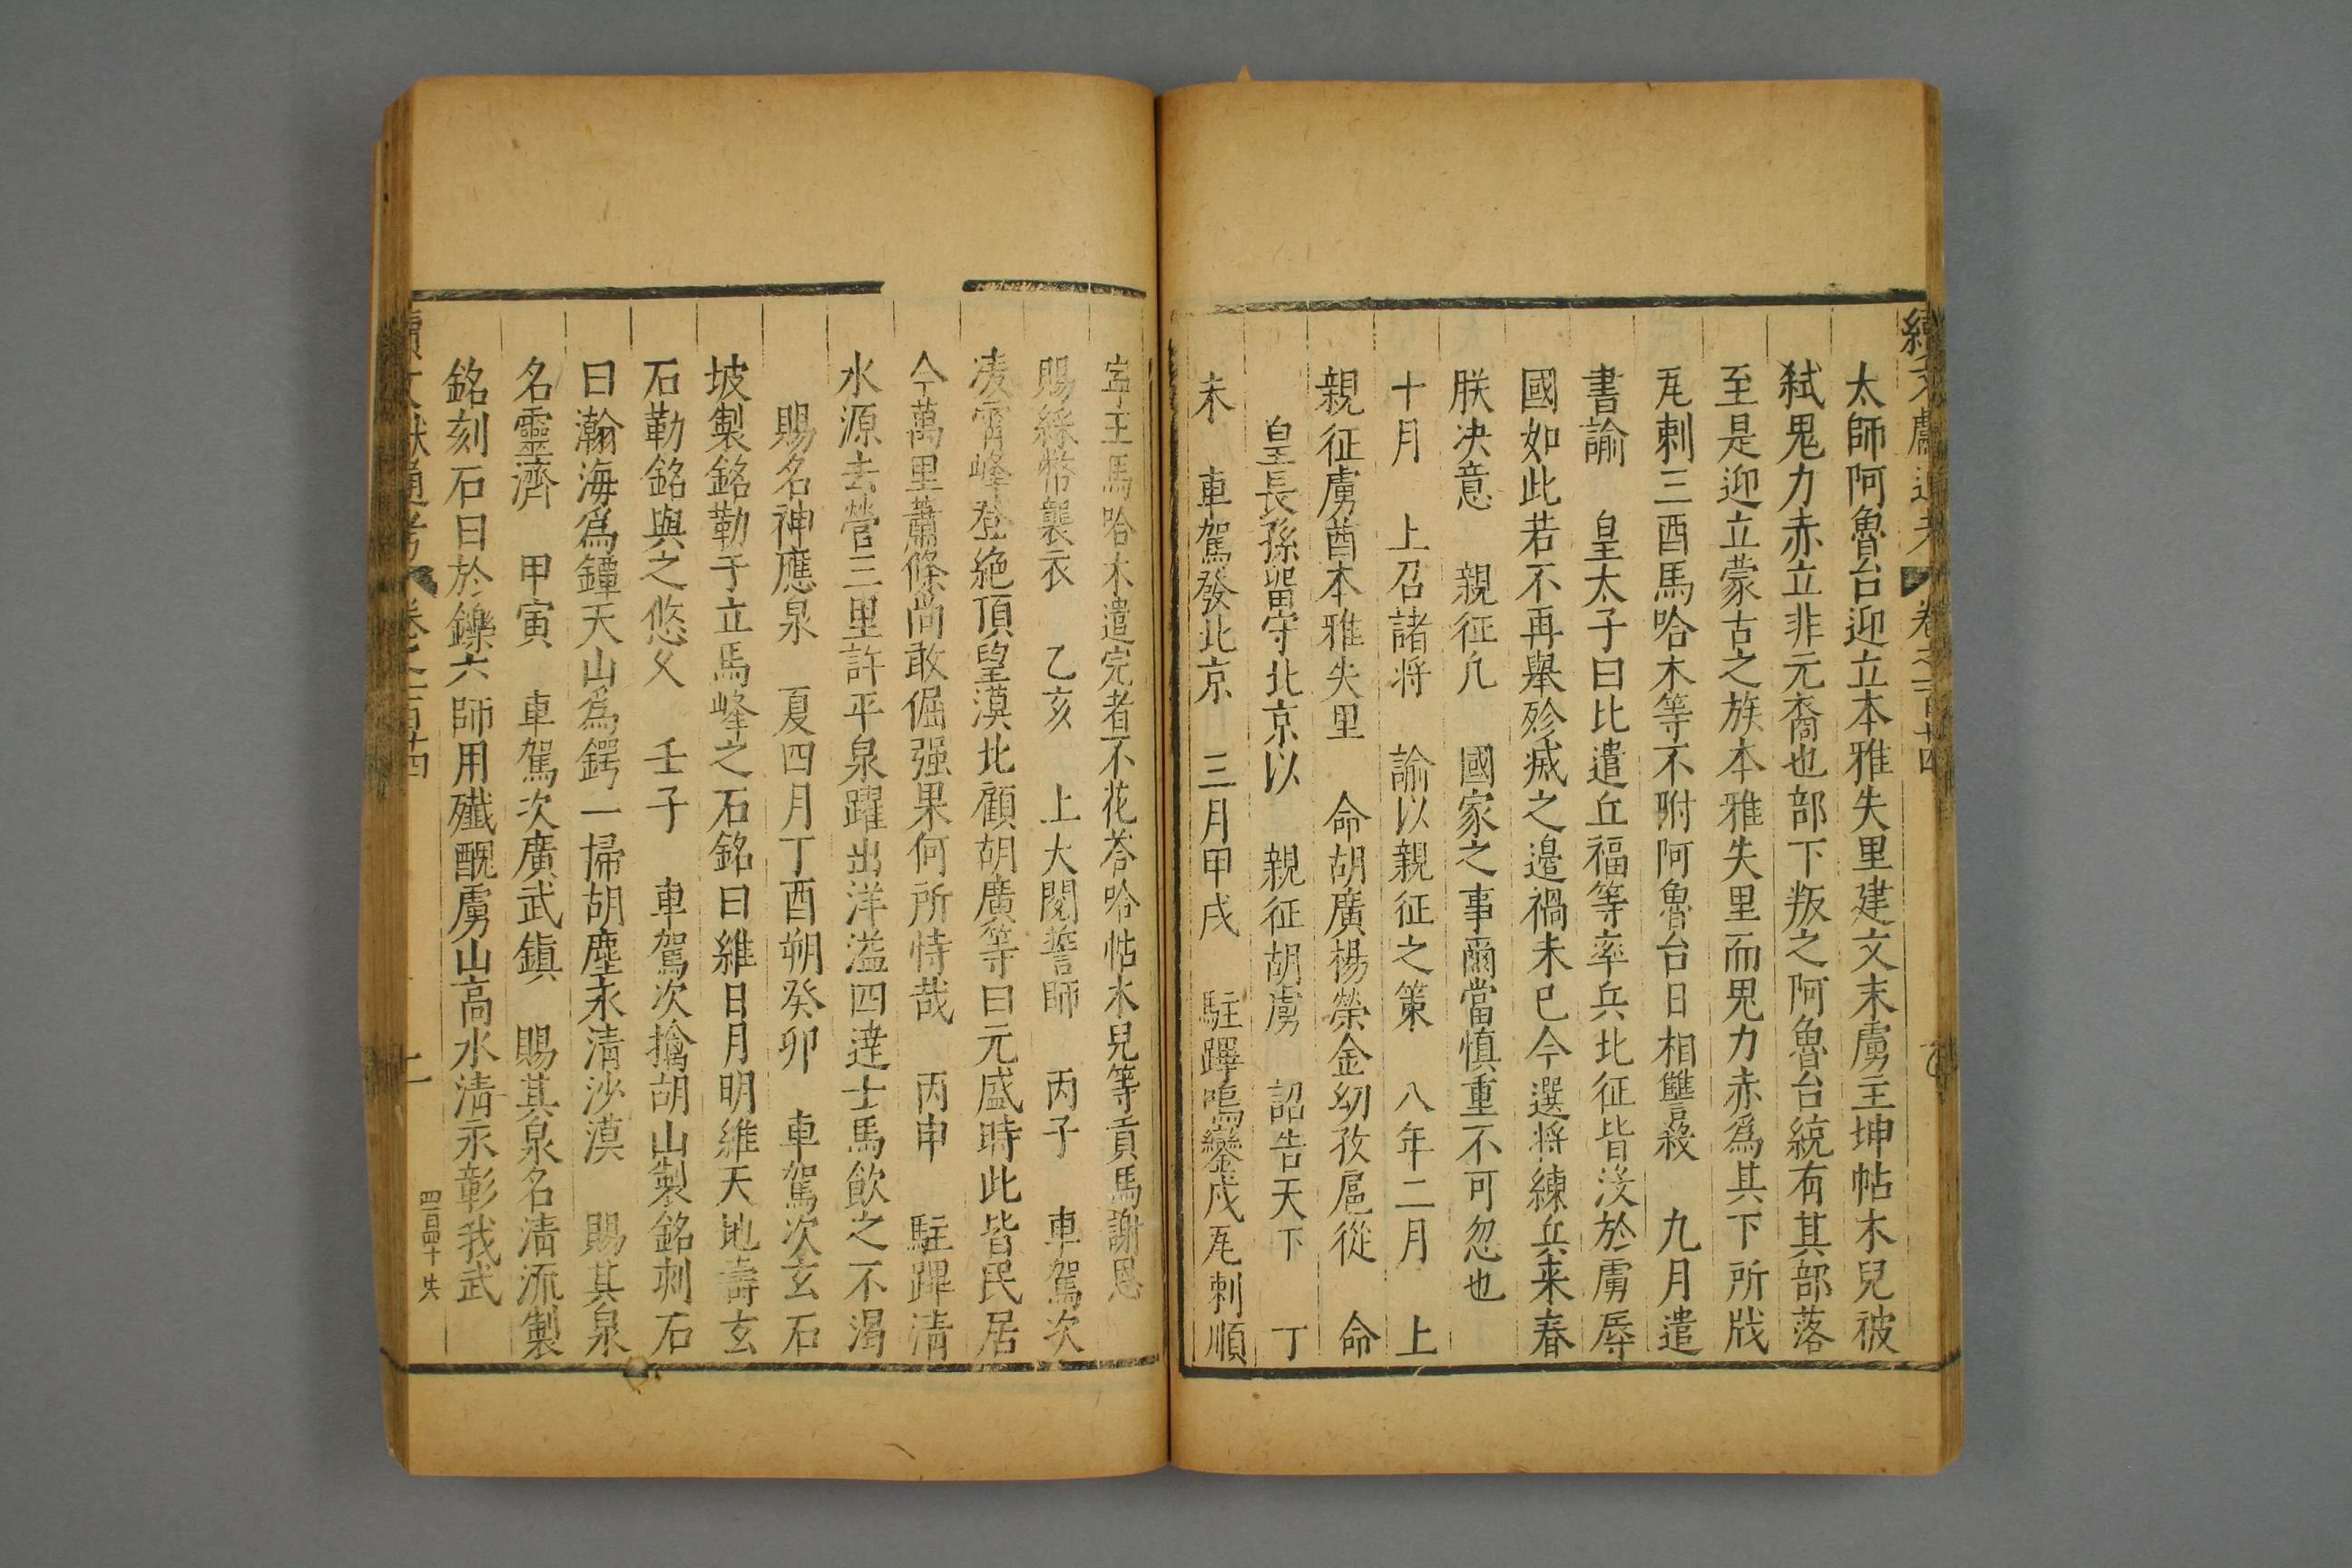 太師阿魯台迎立本雅失里建文末虜主坤帖木兒被
弑鬼力赤立非元裔也部下叛之阿魯台統有其部落
至是迎立蒙古之族本雅失里而鬼力赤為其下所戕
瓦剌三酋馬哈木等不附阿魯台日相讐殺　九月遣
書諭　皇太子曰比遣丘福等率兵北征皆沒於虜辱
國如此若不再舉殄滅之邊禍未已今選將練兵来春
朕决意　親征凡　國家之事爾當慎重不可忽也
十月　上召諸将　諭以親征之策　八年二月　上
親征虜酋本雅失里　命胡廣楊榮金幼孜扈從　命
皇長孫留守北京以　親征胡虜　詔告天下　丁
未　車駕發北京　三月甲戌　駐蹕鳴鑾戍瓦剌順
寕王馬哈木遣完者不花荅哈帖木兒等貢馬謝恩
賜綵幣襲衣　乙亥　上大閱誓師　丙子　車駕次
凌霄峰登絶頂望漠北顧胡廣等曰元盛時此皆民居
今萬里蕭條尚敢倔强果何所恃哉　丙申　駐蹕清
水源去營三里許平泉躍出洋溢四逹士馬飲之不渴
賜名神應泉　夏四月丁酉朔癸卯　車駕次玄石
坡製銘勒于立馬峰之石銘曰維日月明維天地壽玄
石勒銘與之悠久　壬子　車駕次擒胡山製銘刺石
曰瀚海爲鐔天山爲鍔一掃胡塵永清沙漠　賜其泉
名靈濟　甲寅　車駕次廣武鎮　賜其泉名清流製
銘刻石曰於鑠六師用殲醜虜山高水清永彰我武
續文獻通考　卷之二百